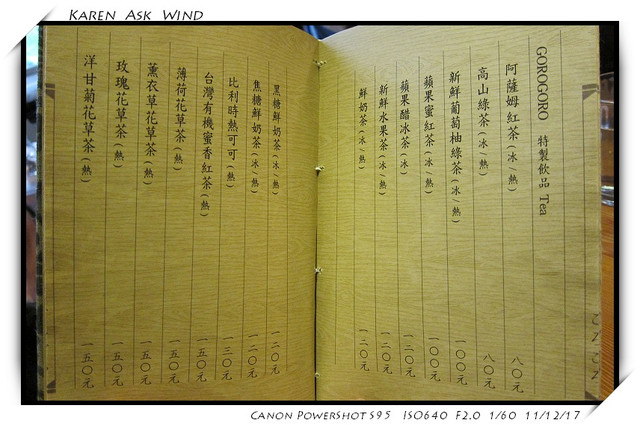 Karen Ask Wind
GOROGORO 特製飲品 Tea
阿薩姆紅茶(冰/熱) 八〇元
高山綠茶(冰/熱) 八〇元
新鮮葡萄柚綠茶(冰/熱) 一〇〇元
蘋果蜜紅茶(冰/熱) 一〇〇元
蘋果醋冰茶(冰) 一三〇元
新鮮水果茶(冰/熱) 一二〇元
鮮奶茶(冰/熱) 一二〇元
黑糖鮮奶茶(冰/熱) 一二〇元
焦糖鮮奶茶(冰/熱) 一二〇元
比利時熱可可(熱) 一三〇元
台灣有機蜜香紅茶(熱) 一五〇元
薄荷花草茶(熱) 一五〇元
薰衣草花草茶(熱) 一五〇元
玫瑰花草茶(熱) 一五〇元
洋甘菊花草茶(熱) 一五〇元
Canon PowerShot S95 ISO640 F2.0 1/60 11/12/17